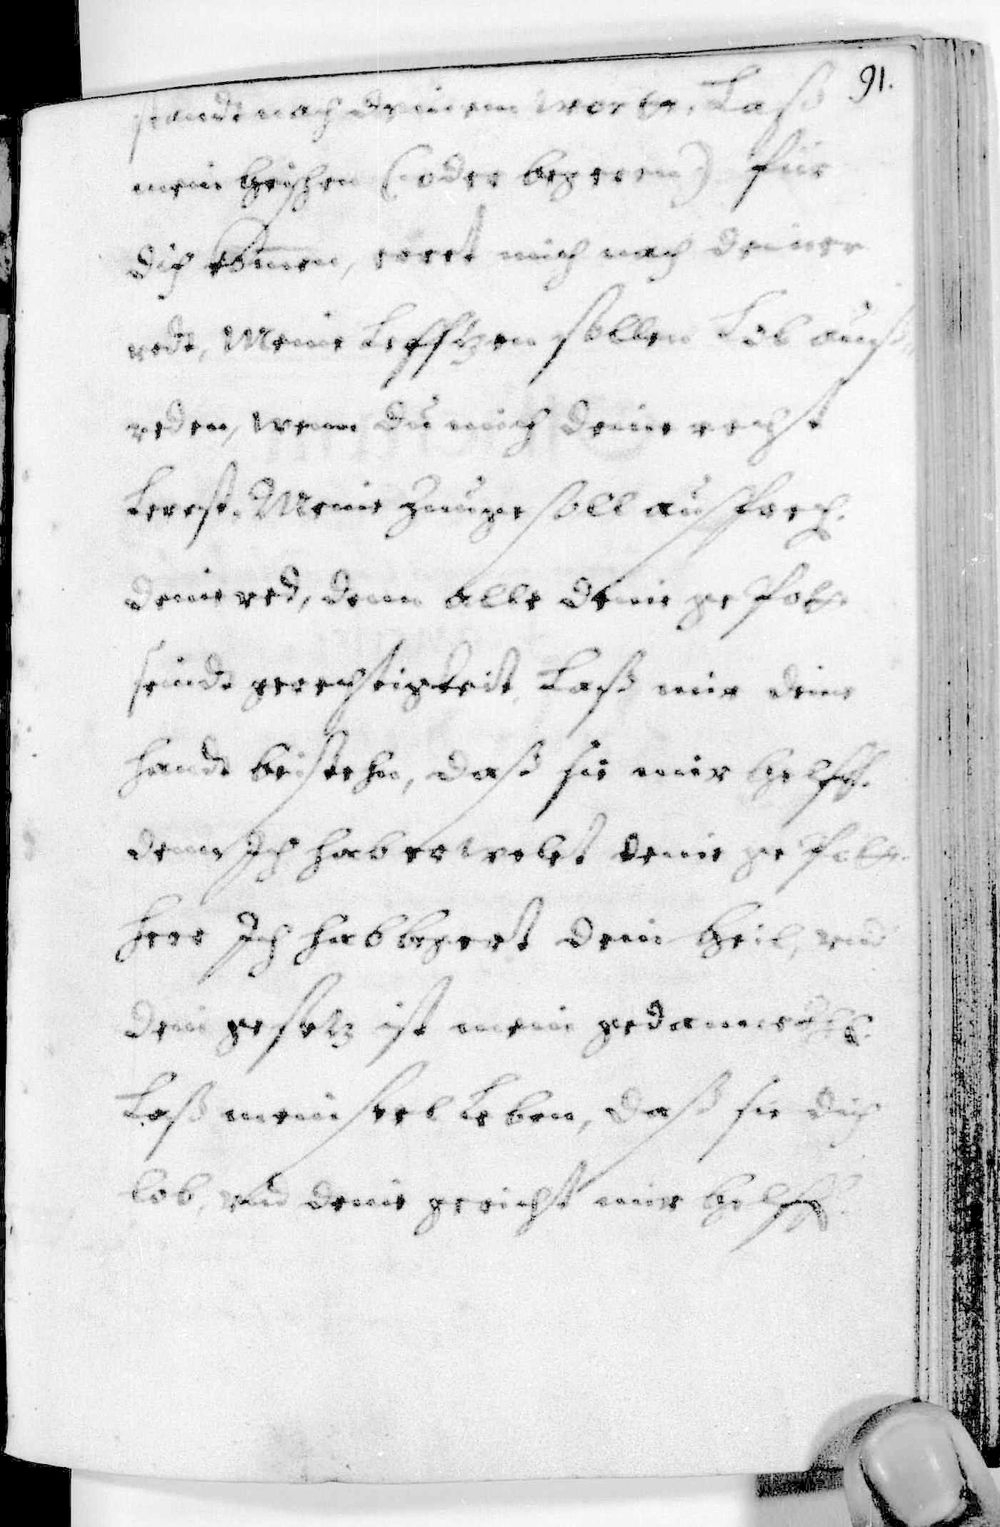 91.
standt nach deinem wortt. Laß
mein heischen (oder begeren) für
dich kommen, erret mich nach deiner
redt, Meine Lefftzen sollen Lob auß
reden, wenn du mich deine recht
Lerest. Meine Zunge soll ausprech.
deine red, denn alle deine gepott
seindt gerechtigkeit. Laß mir deine
handt beistehn, daß sie mir helff.
denn Ich hab erwelet deine gepott.
Herr Ich hab begert dein heil, vnd
dein gesetz ist mein
Laß mein seel Leben, daß sie dich
lob, vnd deine gericht mir helff